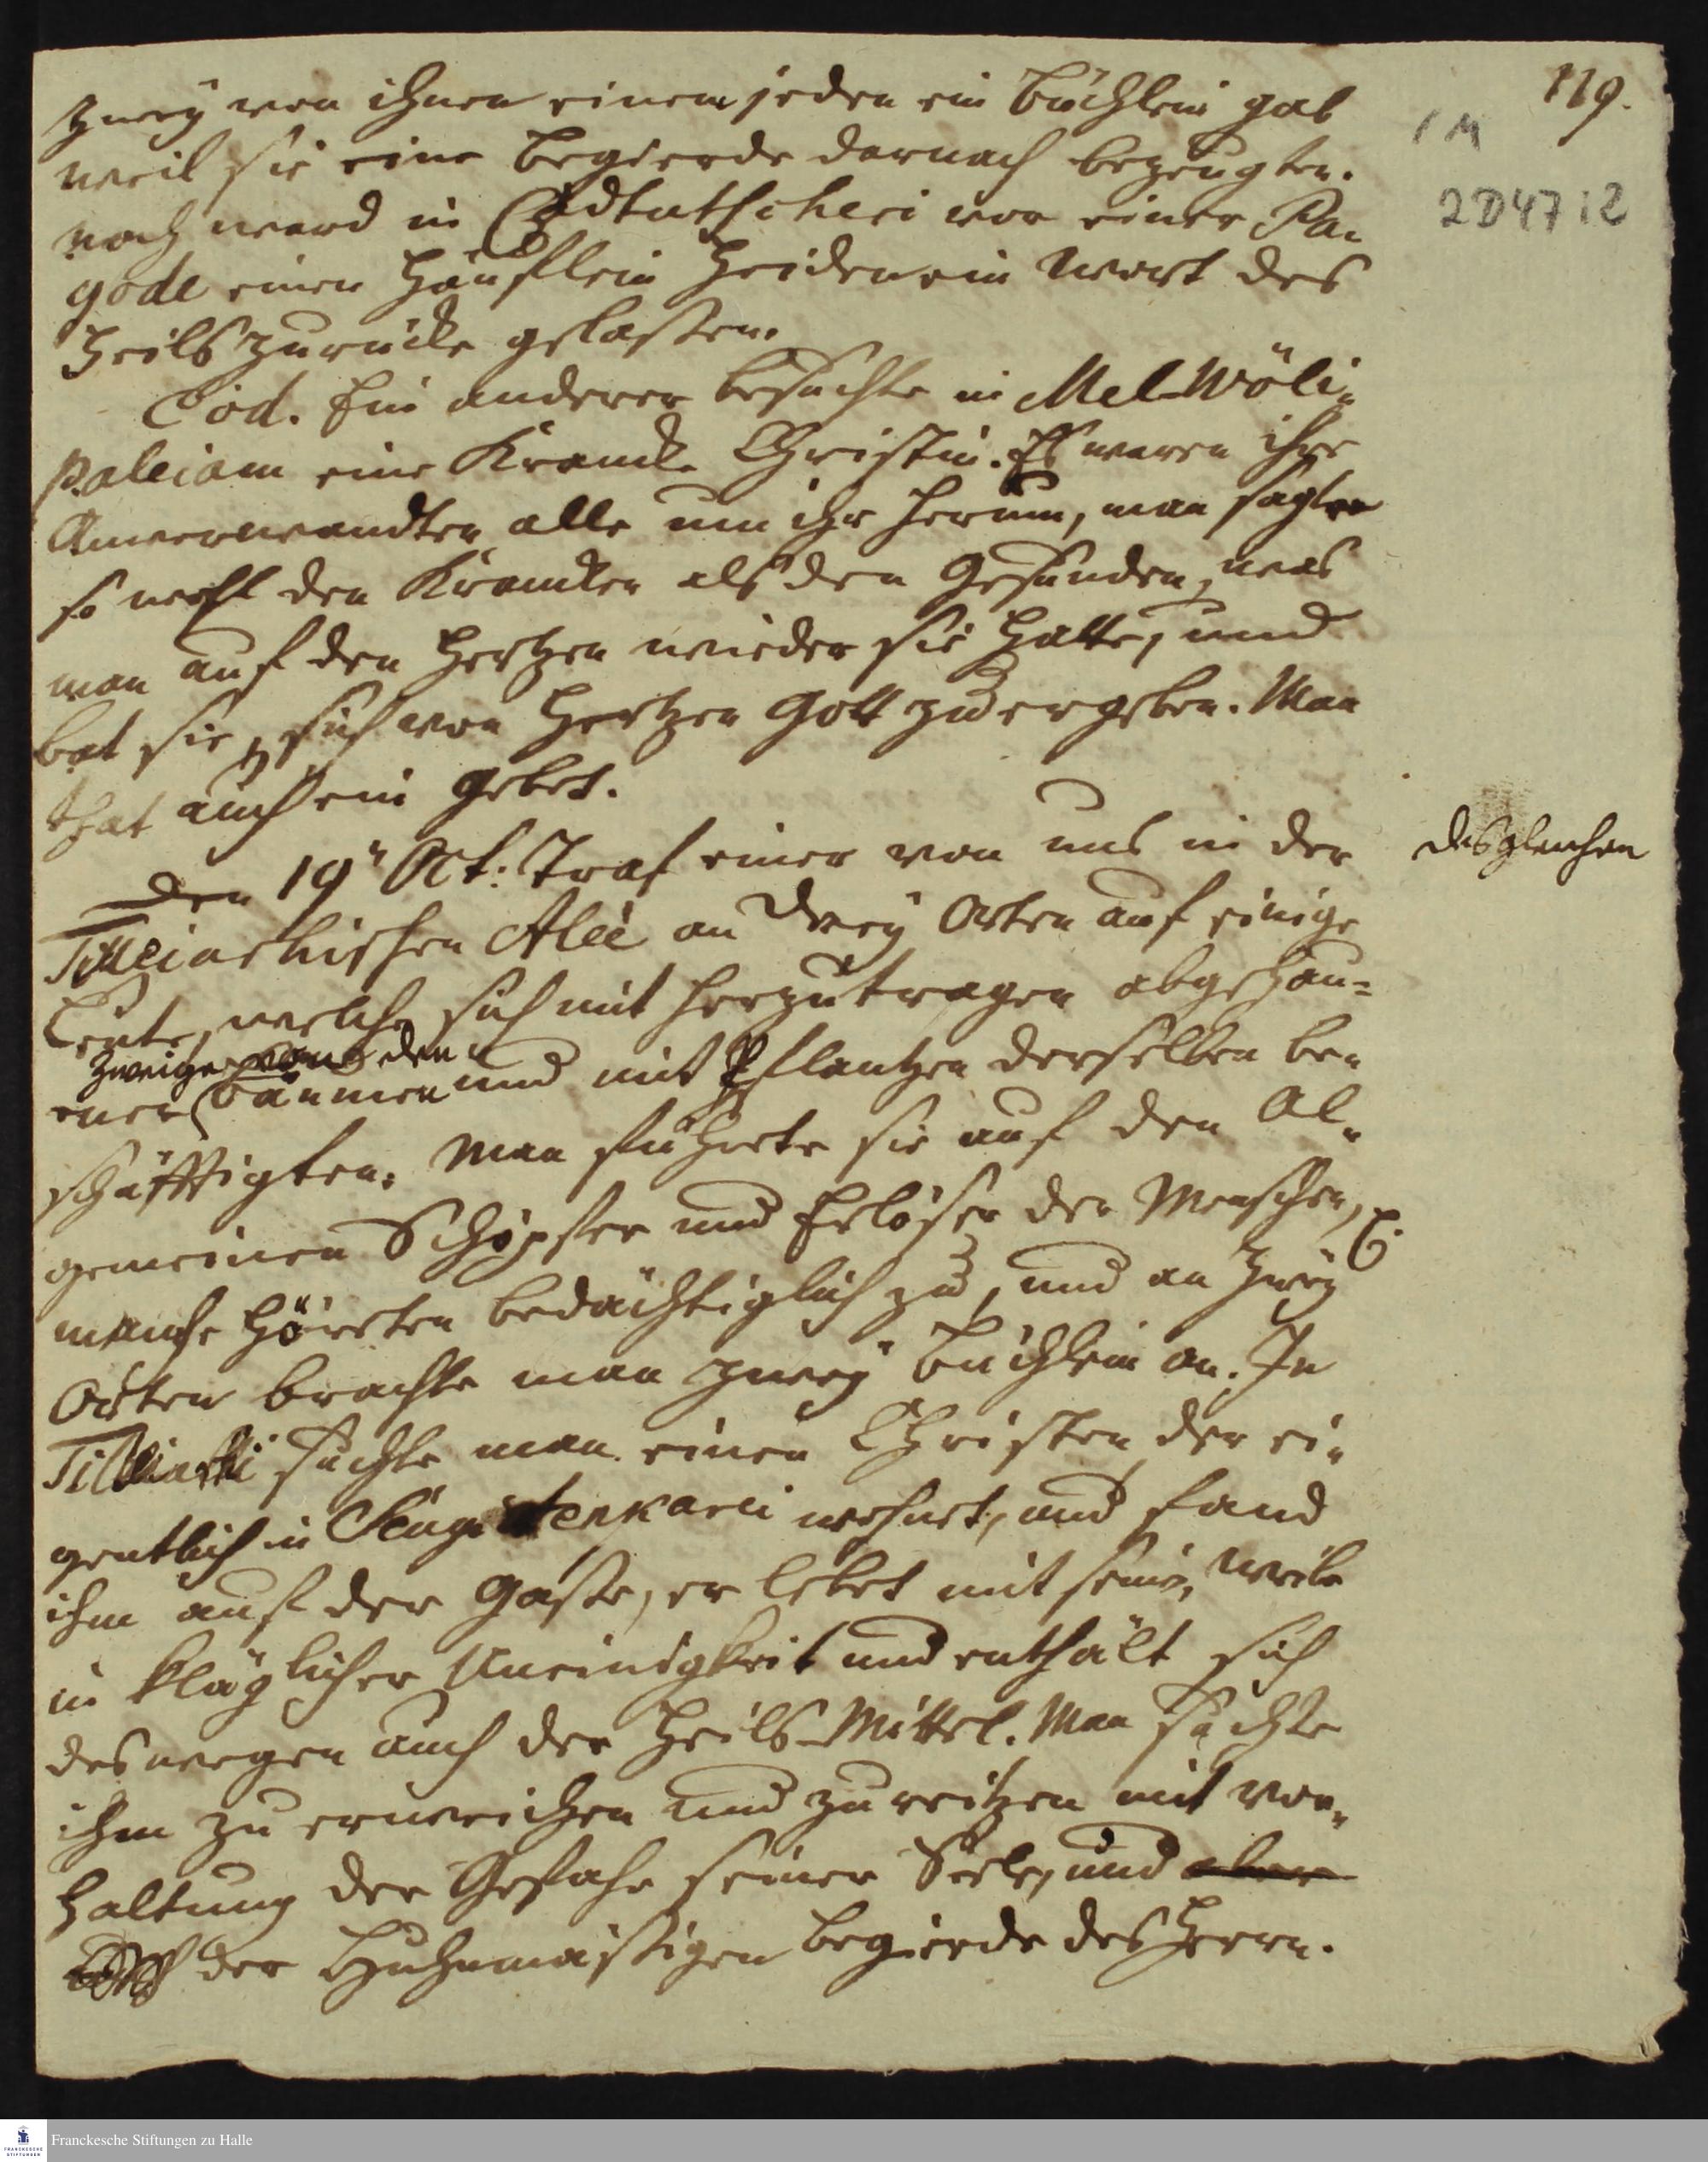 119.
1 M
2 D 47 : 2
zwey von ihnen einem jeden ein Büchlein gab
weil sie eine Begierde darnach bezeugten.
noch ward in Cadtutscheri vor einer Pa-
gode einen Häuflein Heiden ein Wort des
Heils zurücke gelaßen.
Eod. Ein anderer besuchte in Mel-Wöli-
paleiam eine Krancke Christin. Es waren ihre
Anverwandten alle um ihr herum, man sagte
so wohl den Krancken als den Gesunden, was
man auf den Hertzen wieder sie hatte, und
bat sie, sich von Hertzen Gott zu ergeben. Man
that auch ein Gebet.
Den 19n Oct: Traf einer von uns in der
desgleichen
Tilleiarhischen Aleé an drey Orten auf einige
Leute, welche sich mit herzutragen abgehau-
Zweige von den
ener Bäumen und mit Pflantzen derselben be-
schäfftigten. Man führete sie auf den Al-
gemeinen Schöpfer und Erlöser der Menschen,
manche höreten bedächtiglich zu, und an zwey
Orten brachte man zwey Büchlein an. In
Tilleiarhi suchte man einen Christen, der ei-
gentlich in wohnet, und fand
ihm auf der Gaße, er lebet mit sein. Weibe
in kläglicher Uneinigkeit und enthält sich
deswegen auch der Heils-Mittel. Man suchte
ihm zu erweichen und zu reitzen mit vor-
haltung der Gefahr seiner Seele, und
der Huhnmäßigen Begierde des Herrn.
Franckesche Stiftungen zu Halle